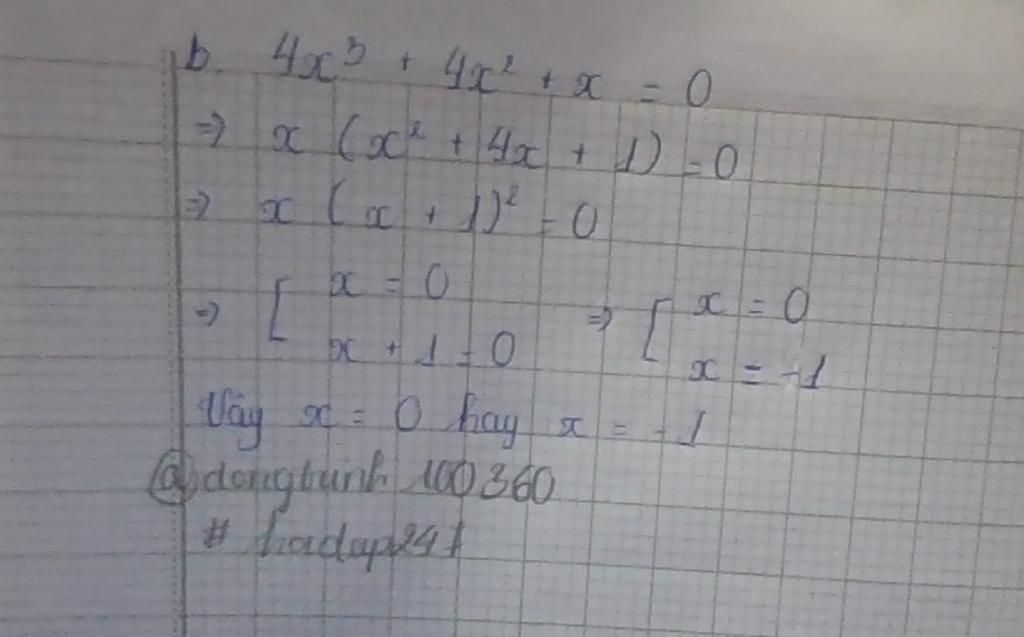 b. 4x³ + 4x² + x = 0
⇒ x (x² + 4x + 1) = 0
⇒ x (x + 1)² = 0
⇒ [ x = 0 ⇒ [ x = 0
x + 1 = 0 x = -1
Vậy x = 0 hay x = -1
@dongbinh100360
# hoidap247